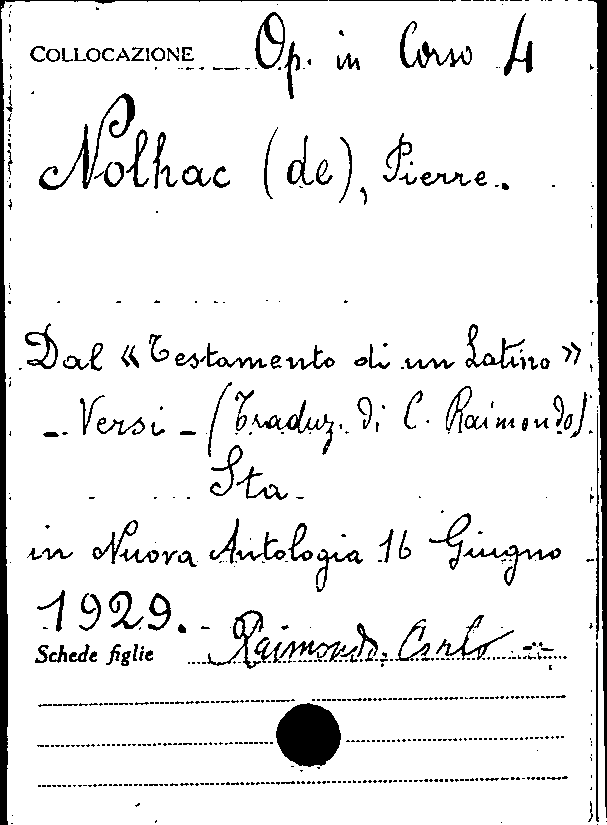 COLLOCAZIONE Op. in Corso 4
Nolhac (de), Pierre.
Dal «Testamento di un Latino»
- Versi - (Traduz. di C. Raimondo)
Sta
in Nuova Antologia 16 Giugno
1929.
Schede figlie Raimondo, Carlo